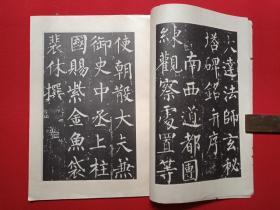 大達法師玄秘
塔碑銘并序
南西道都團
練觀察處置等
使朝散大夫兼
御史中丞上柱
國賜紫金魚袋
裴休撰